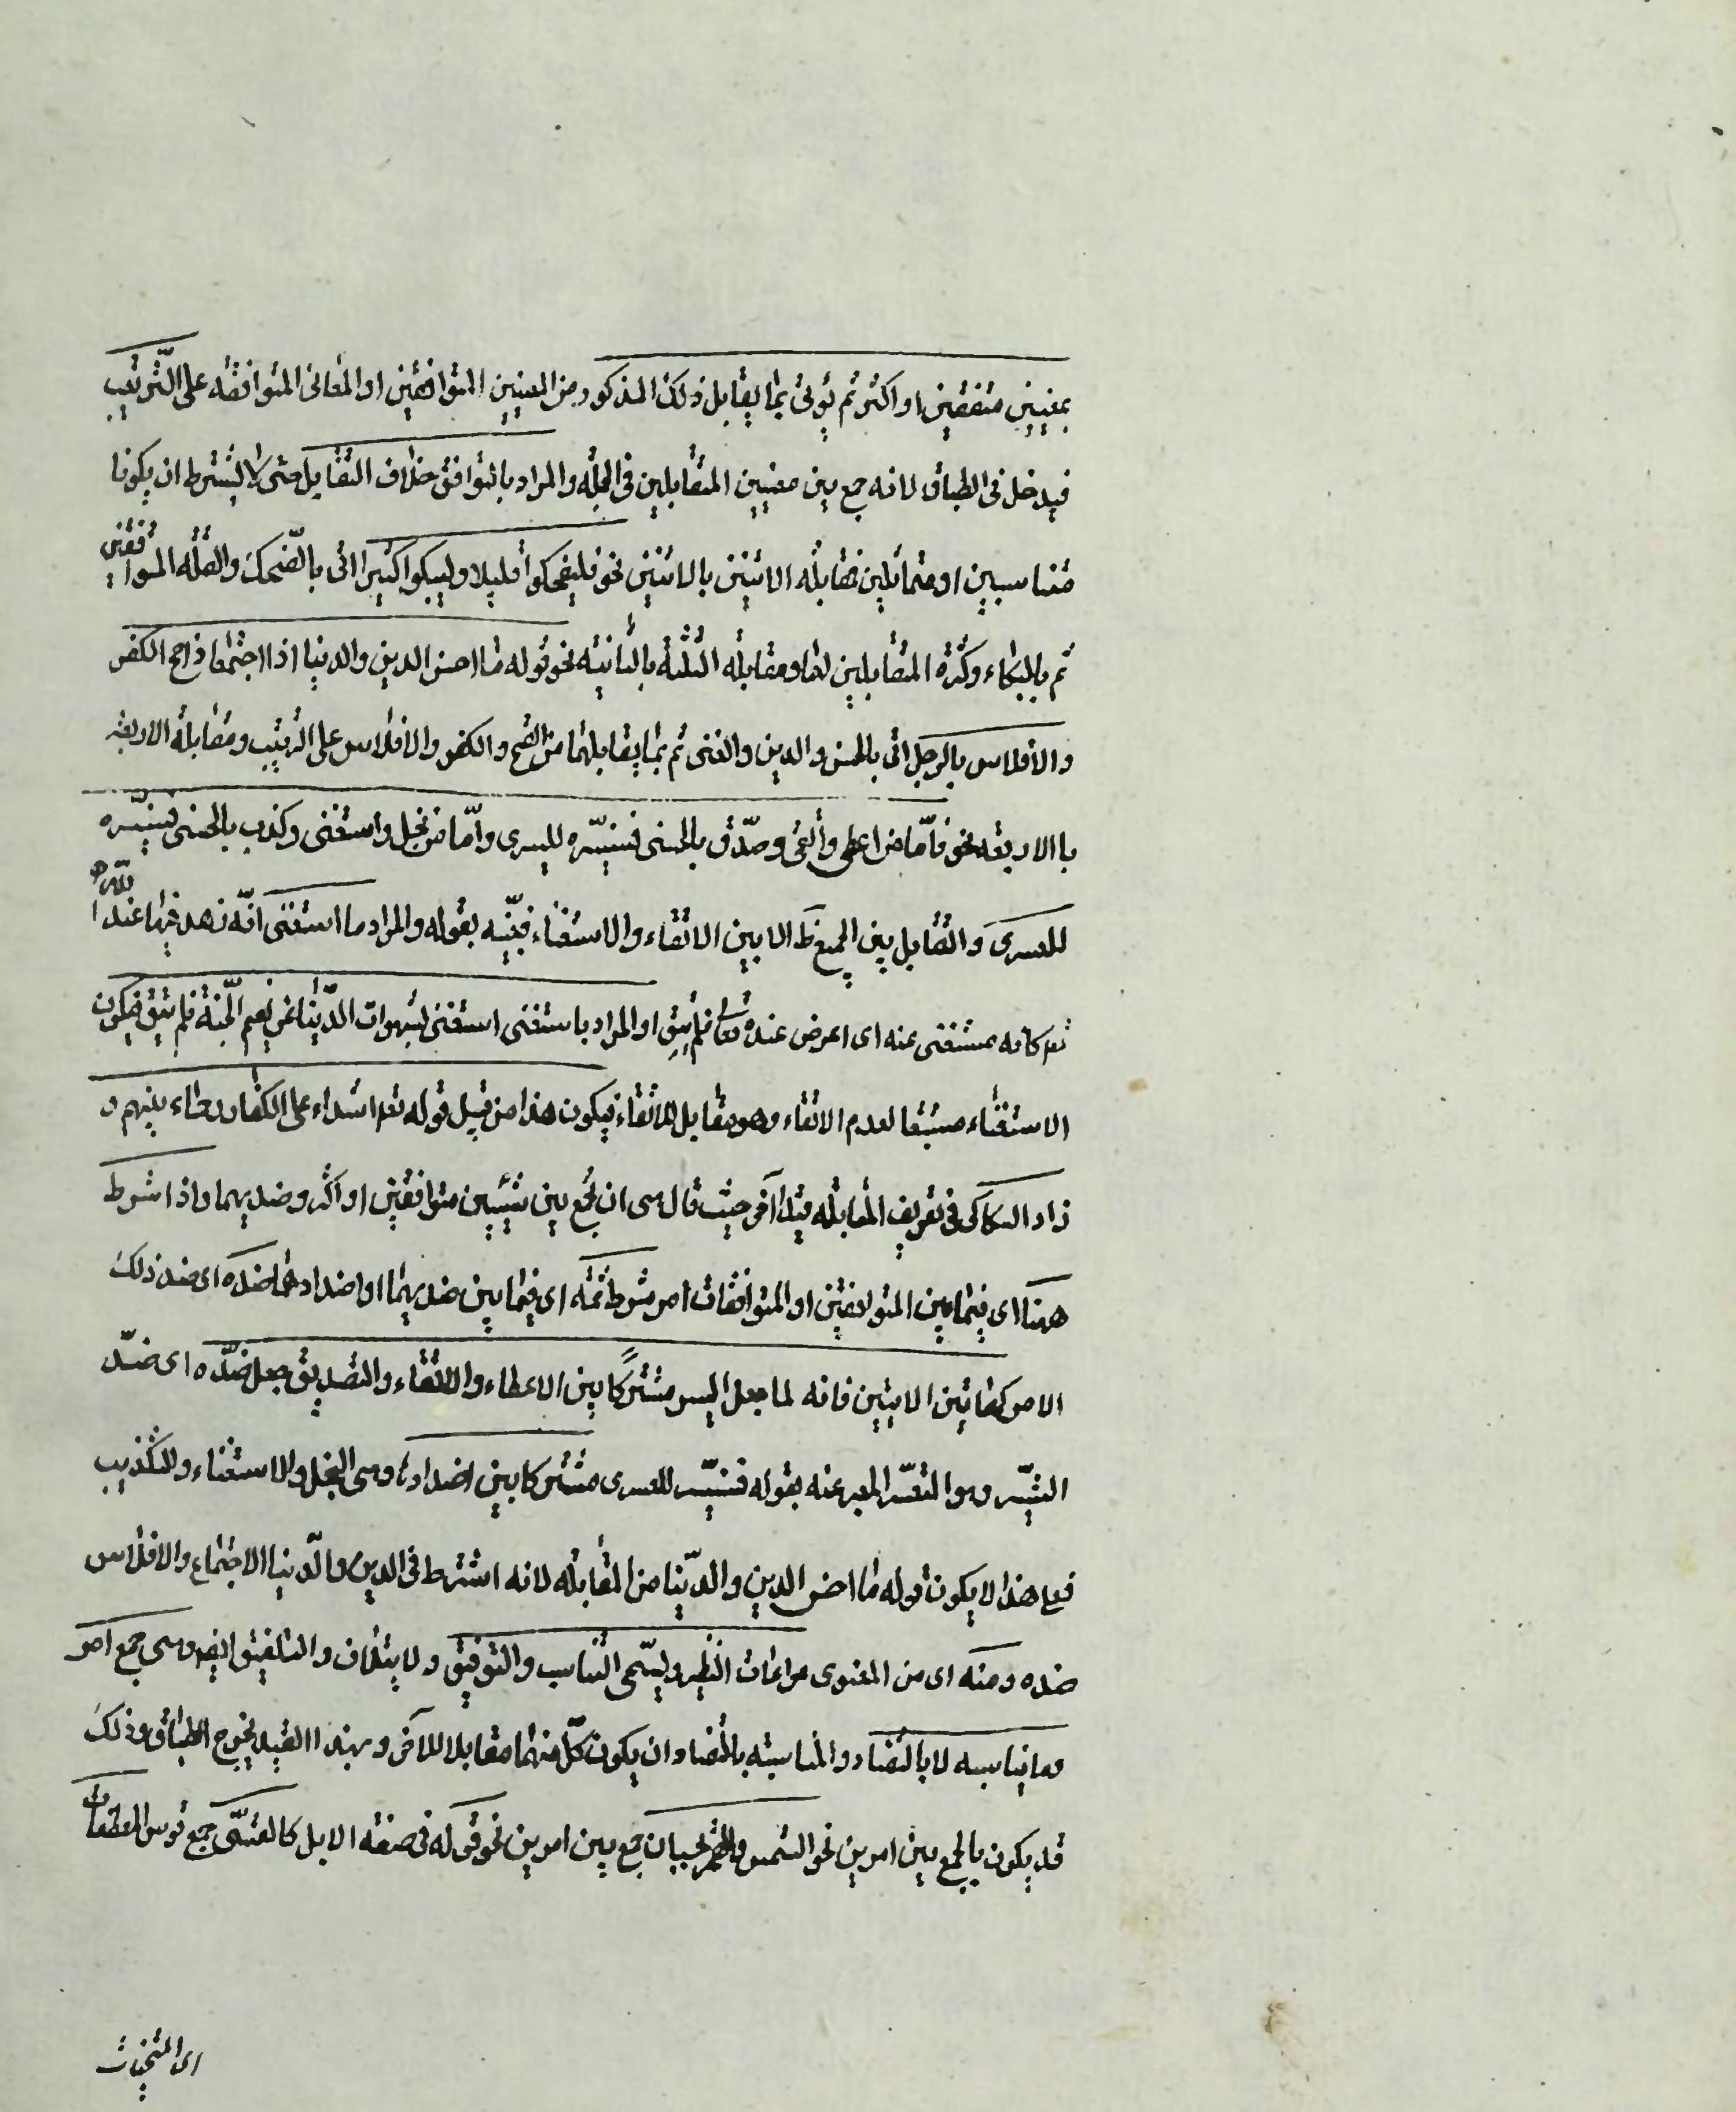 بمعنيين متفقين او اكثر ثم يؤتى بما يقابل ذلك المذكور من المعنيين المتوافقين او المعانى المتوافقه على الترتيب
فيدخل فى الطباق لانه جمع بين معنيين المتقابلين فى الجمله والمراد بالتوافق خلاف التقابل حتى لا يشترط ان يكونا
متناسبين او متماثلين فمقابله الاثنين بالاثنين نحو فليضحكوا قليلا وليبكوا كثيرا اتى بالضحك والقله المتوافقين
ثم بالبكاء وكثره المتقابلين لهما ومقابله الثلثه بالثانيه نحو قوله ما احسن الدين والدنيا اذا اجتمعا واقبح الكفر
والافلاس بالرجل اتى بالحسن والدين والغنى ثم بما يقابلهما من القبح والكفر والافلاس على الترتيب ومقابله الاربعه
باالاربعه نحو فأمّا من اعطى واتقى وصدّق بالحسنى فسنيسّره لليسرى وامّا من بخل واستغنى وكذب بالحسنى فسنيسّره
للعسرى والتقابل بين الجميع ظ الا بين الاتقاء والاستغناء فبيّنه بقوله والمراد ما استغنى انّه زهد فيما عند الله
تع كانه مستغنى عنه اى اعرض عنده تعا فلم يتق او المراد باستغنى استغنى بشهوات الدّنيا عن نعيم الجنّة فلم يتق فيكون
الاستغناء مستتبعا لعدم الاتقاء وهو مقابل للاتقاء فيكون هذا من قبيل قوله تعه اشداء على الكفار رحماء بينهم و
زاد السكاكى فى تعريف المقابله قيدا آخر حيث قال هى ان تجمع بين شيئين متوافقين او اكثر وضديهما واذا شرط
ههنا اى فيما بين المتوافقين او المتوافقات امر شرط ثمّه اى فيما بين ضديهما او اضدادهما ضده اى ضد ذلك
الامر كهاتين الايتين فانه لما جعل اليسر مشتركًا بين الاعطاء والاتقاء والتصديق جعل ضدّه اى ضدّ
التيسّر وهو التعسّر المعبر عنه بقوله فسنيسّره للعسرى مشتركا بين اضدادها وهى البخل والاستغناء والتكذيب
فعلى هذا لا يكون قوله ما احسن الدين والدّنيا من المقابله لانه اشترط فى الدين والدّنيا الاجتماع والافلاس
ضده ومنه اى من المعنوى مراعات النظير ويسّمى التناسب والتوفيق ولايتلاف والتلفيق ايضه وهى جمع امر
وما يناسبه لا بالتضاد والمناسبته بالتضاد ان يكون كلّ منهما مقابلا للآخر وبهذا القيد يخرج الطباق وذلك
قد يكون بالجمع بين امرين نحو الشمس والقمر بحسبان جمع بين امرين نحو قوله فى صفه الابل كالقسّى جمع قوس المعطفات
اى المنحنيات